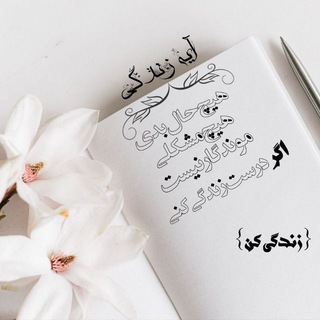 آیه زندگی
هیچ حال بدی
هیچ مشکلی
موندگار نیست
اگر درست زندگی کنی
{زندگی کن}